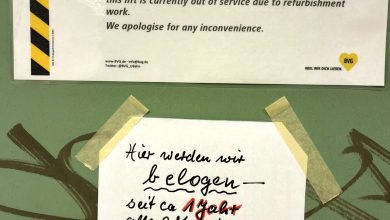 this lift is currently out of service due to refurbishment
work.
We apologise for any inconvenience.
www.BVG.de · info@bvg.de
Twitter: @BVG_Ubahn
BVG
WEIL WIR DICH LIEBEN.
Hier werden wir
belogen –
seit ca 1 Jahr